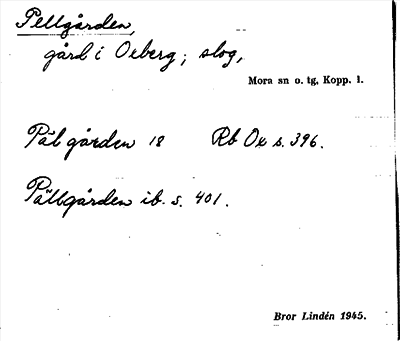 Pellgården,
gård i Oxberg; slog,
Mora sn o. tg, Kopp. l.
Päl gården 18 Rb Ox s. 396.
Pällgården ib. s. 401.
Bror Lindén 1945.